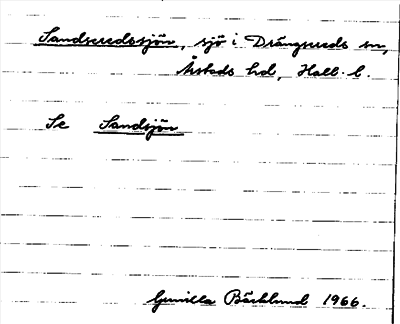 Sandseredssjön, sjö i Drängsereds sn,
Årstads hd, Hall. l.
Se Sandsjön
Gunilla Bäcklund 1966.